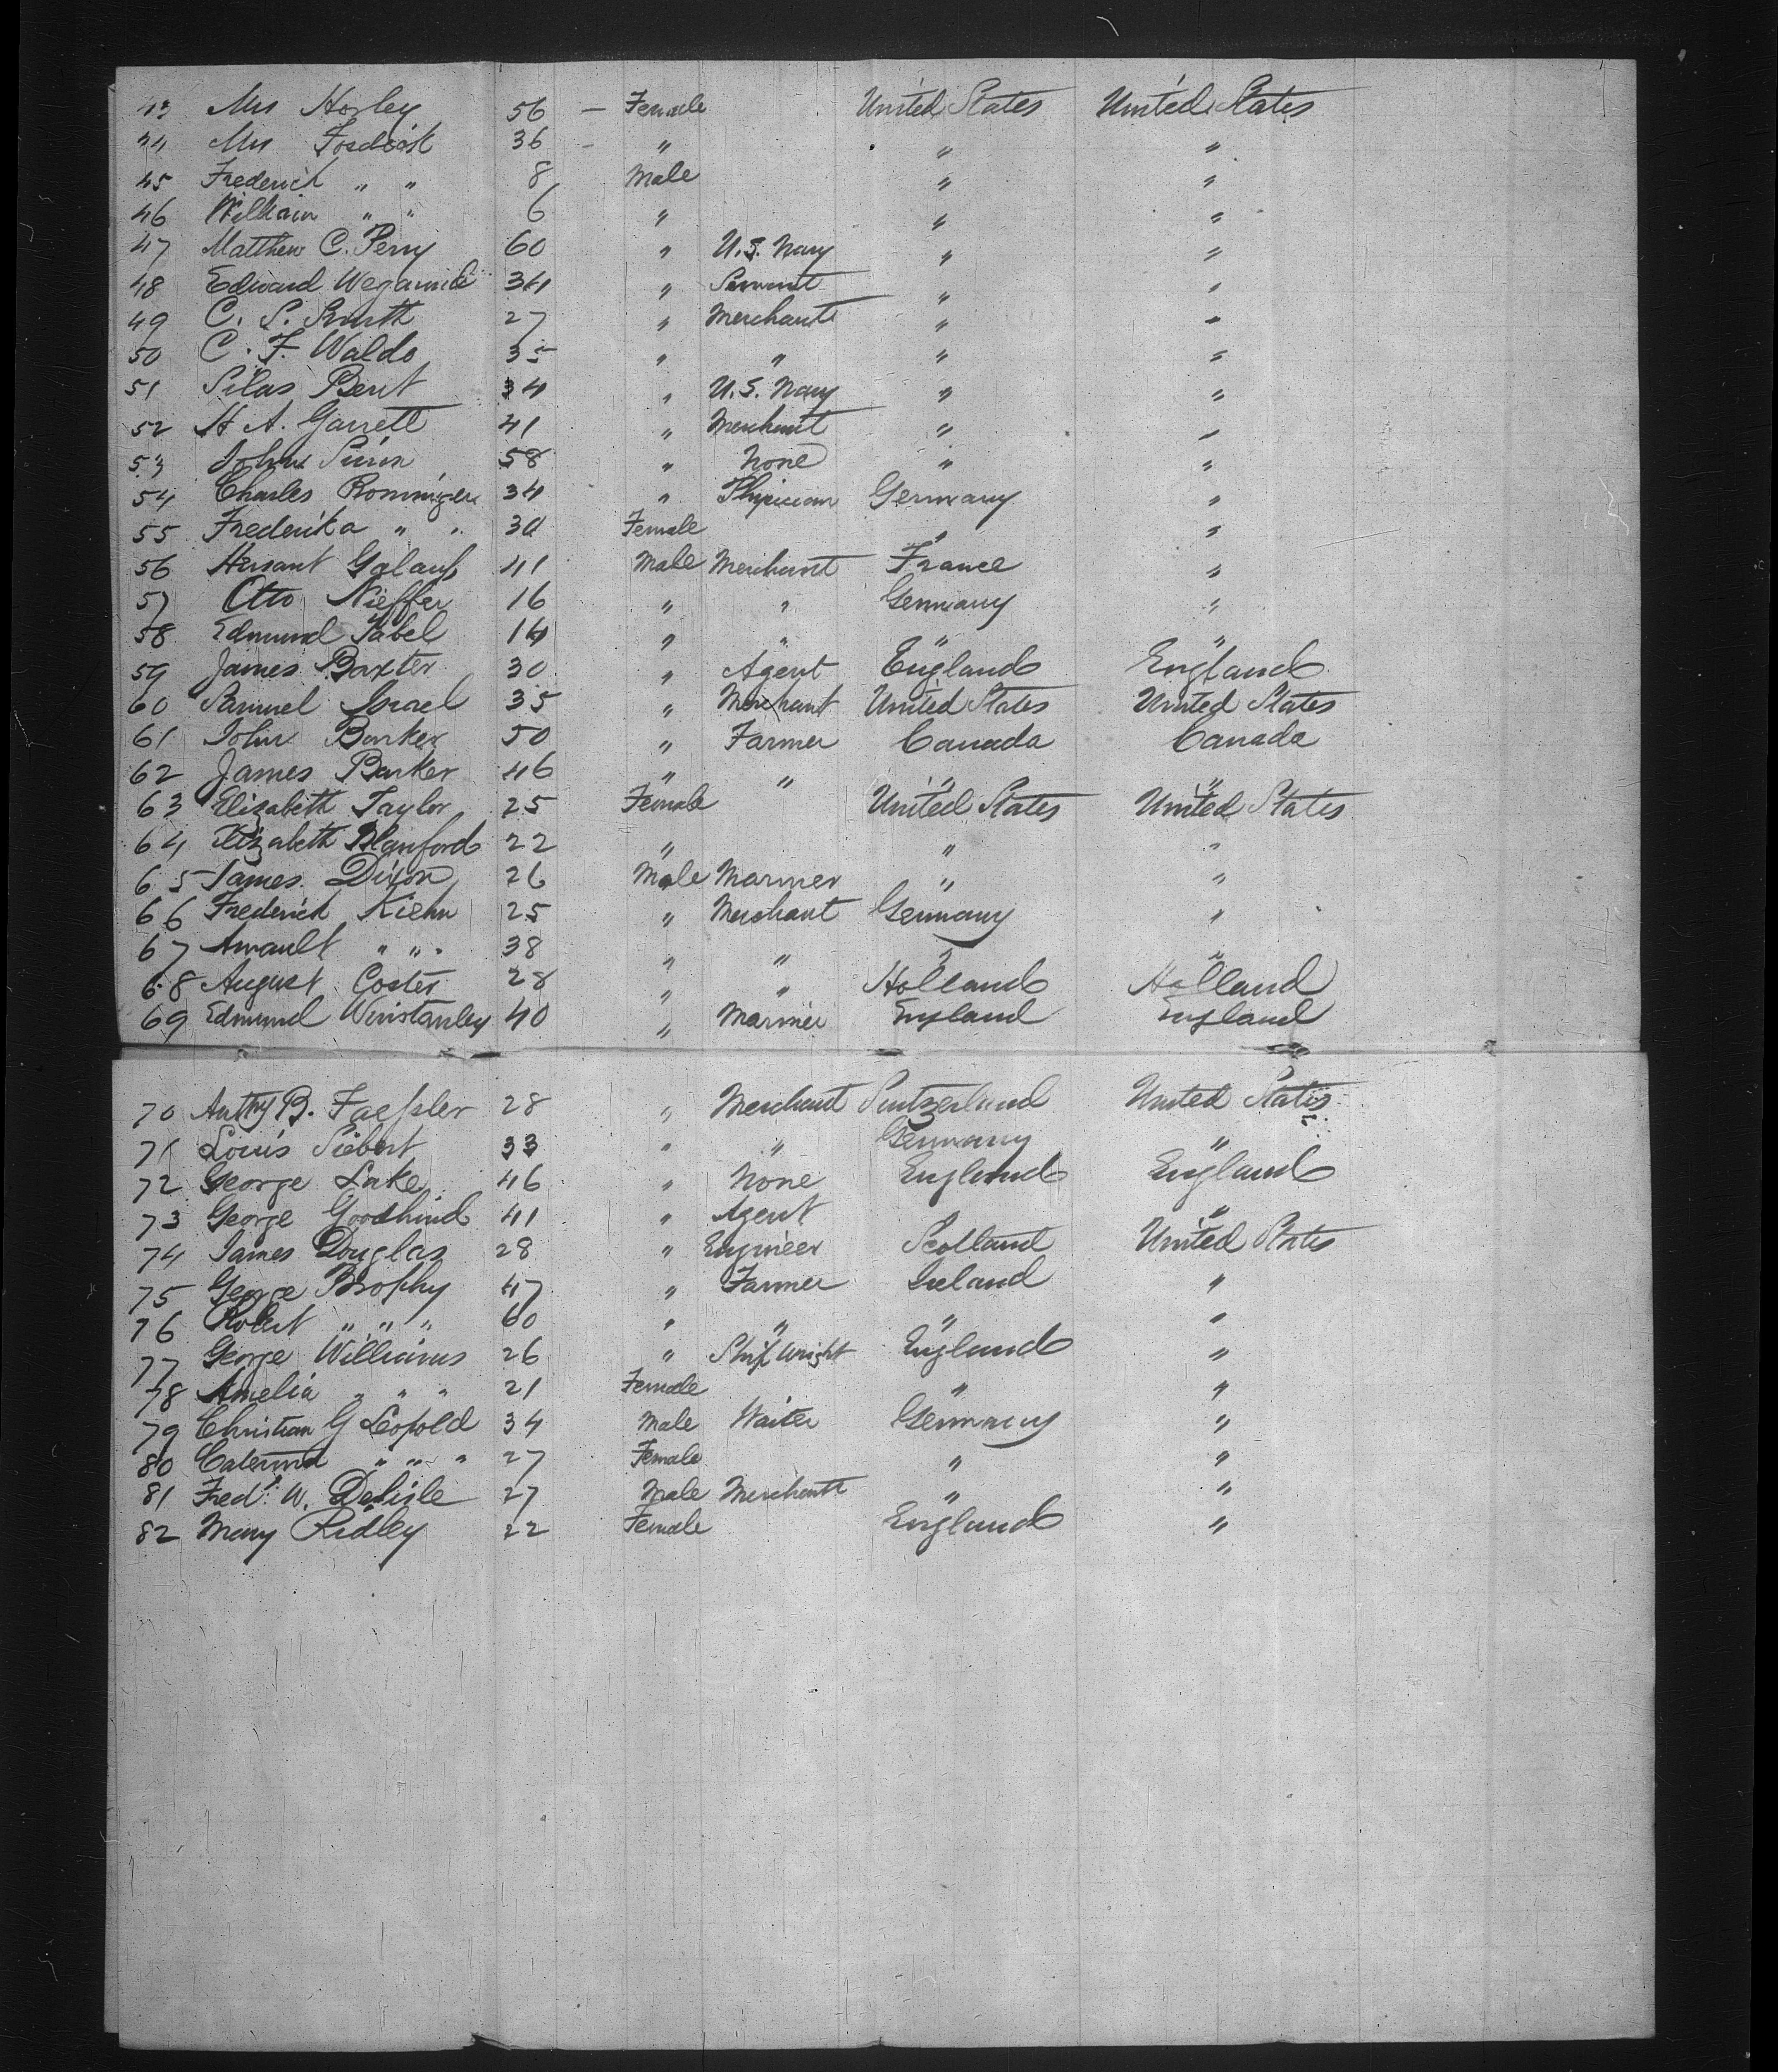 43 Mrs Horley 56 — Female United States United States
44 Mrs Fosdick 36 - " " "
45 Frederick " " 8 Male " "
46 William " " 6 " " "
47 Matthew C. Perry 60 " U.S. Navy " "
48 Edward 34 " Servant " "
49 C. S. Smith 27 " Merchant " "
50 C. F. Waldo 35 " " " "
51 Silas Bent 34 " U.S. Navy " "
52 H A. Garrett 41 " Merchant " "
53 John 58 " None " "
54 Charles Rominger 34 " Physician Germany "
55 Frederika " " 30 Female " "
56 41 Male Merchant France "
57 Otto Nieffer 16 " " Germany "
58 Edmund Sabel 14 " " " "
59 James Baxter 30 " Agent England England
60 Samuel Israel 35 " Merchant United States United States
61 John Barker 50 " Farmer Canada Canada
62 James Barker 46 " " " "
63 Elizabeth Taylor 25 Female United States United States
64 Elizabeth Blanford 22 " " "
65 James Dixon 26 Male Mariner " "
66 Frederick Kiehn 25 " Merchant Germany "
67 " " " 38 " " " "
68 August Coster 28 " " Holland Holland
69 Edmund Winstanley 40 " Mariner England England
70 Anthy B. Faessler 28 " Merchant Switzerland United States
71 Louis Siebert 33 " " Germany "
72 George Lake 46 " None England England
73 George Goodhind 41 " Agent " "
74 James Douglas 28 " Engineer Scotland United States
75 George Brophy 47 " Farmer Ireland "
76 Robert " " " 60 " " " "
77 George Williams 26 " Ship Wright England "
78 Amelia " " " 21 Female " "
79 Christian G Leopold 34 Male Waiter Germany "
80 " " " 27 Female " "
81 Fredk W. Delisle 27 Male Merchant " "
82 Mary Ridley 22 Female England "